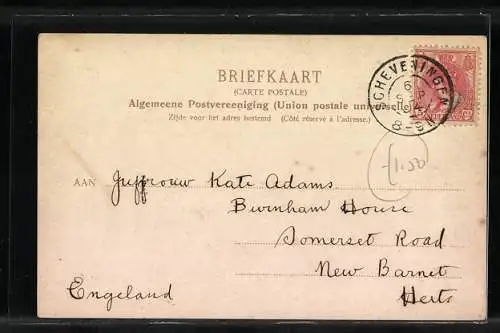 BRIEFKAART
(CARTE POSTALE)
Algemeene Postvereeniging (Union postale universelle)
Zijde voor het adres bestemd (Côté réservé à l'adresse.)
SCHEVENINGEN
6
SEP
8-9N
1.50
AAN Juffrouw Kate Adams
Burnham House
Somerset Road
New Barnet
Engeland Herts